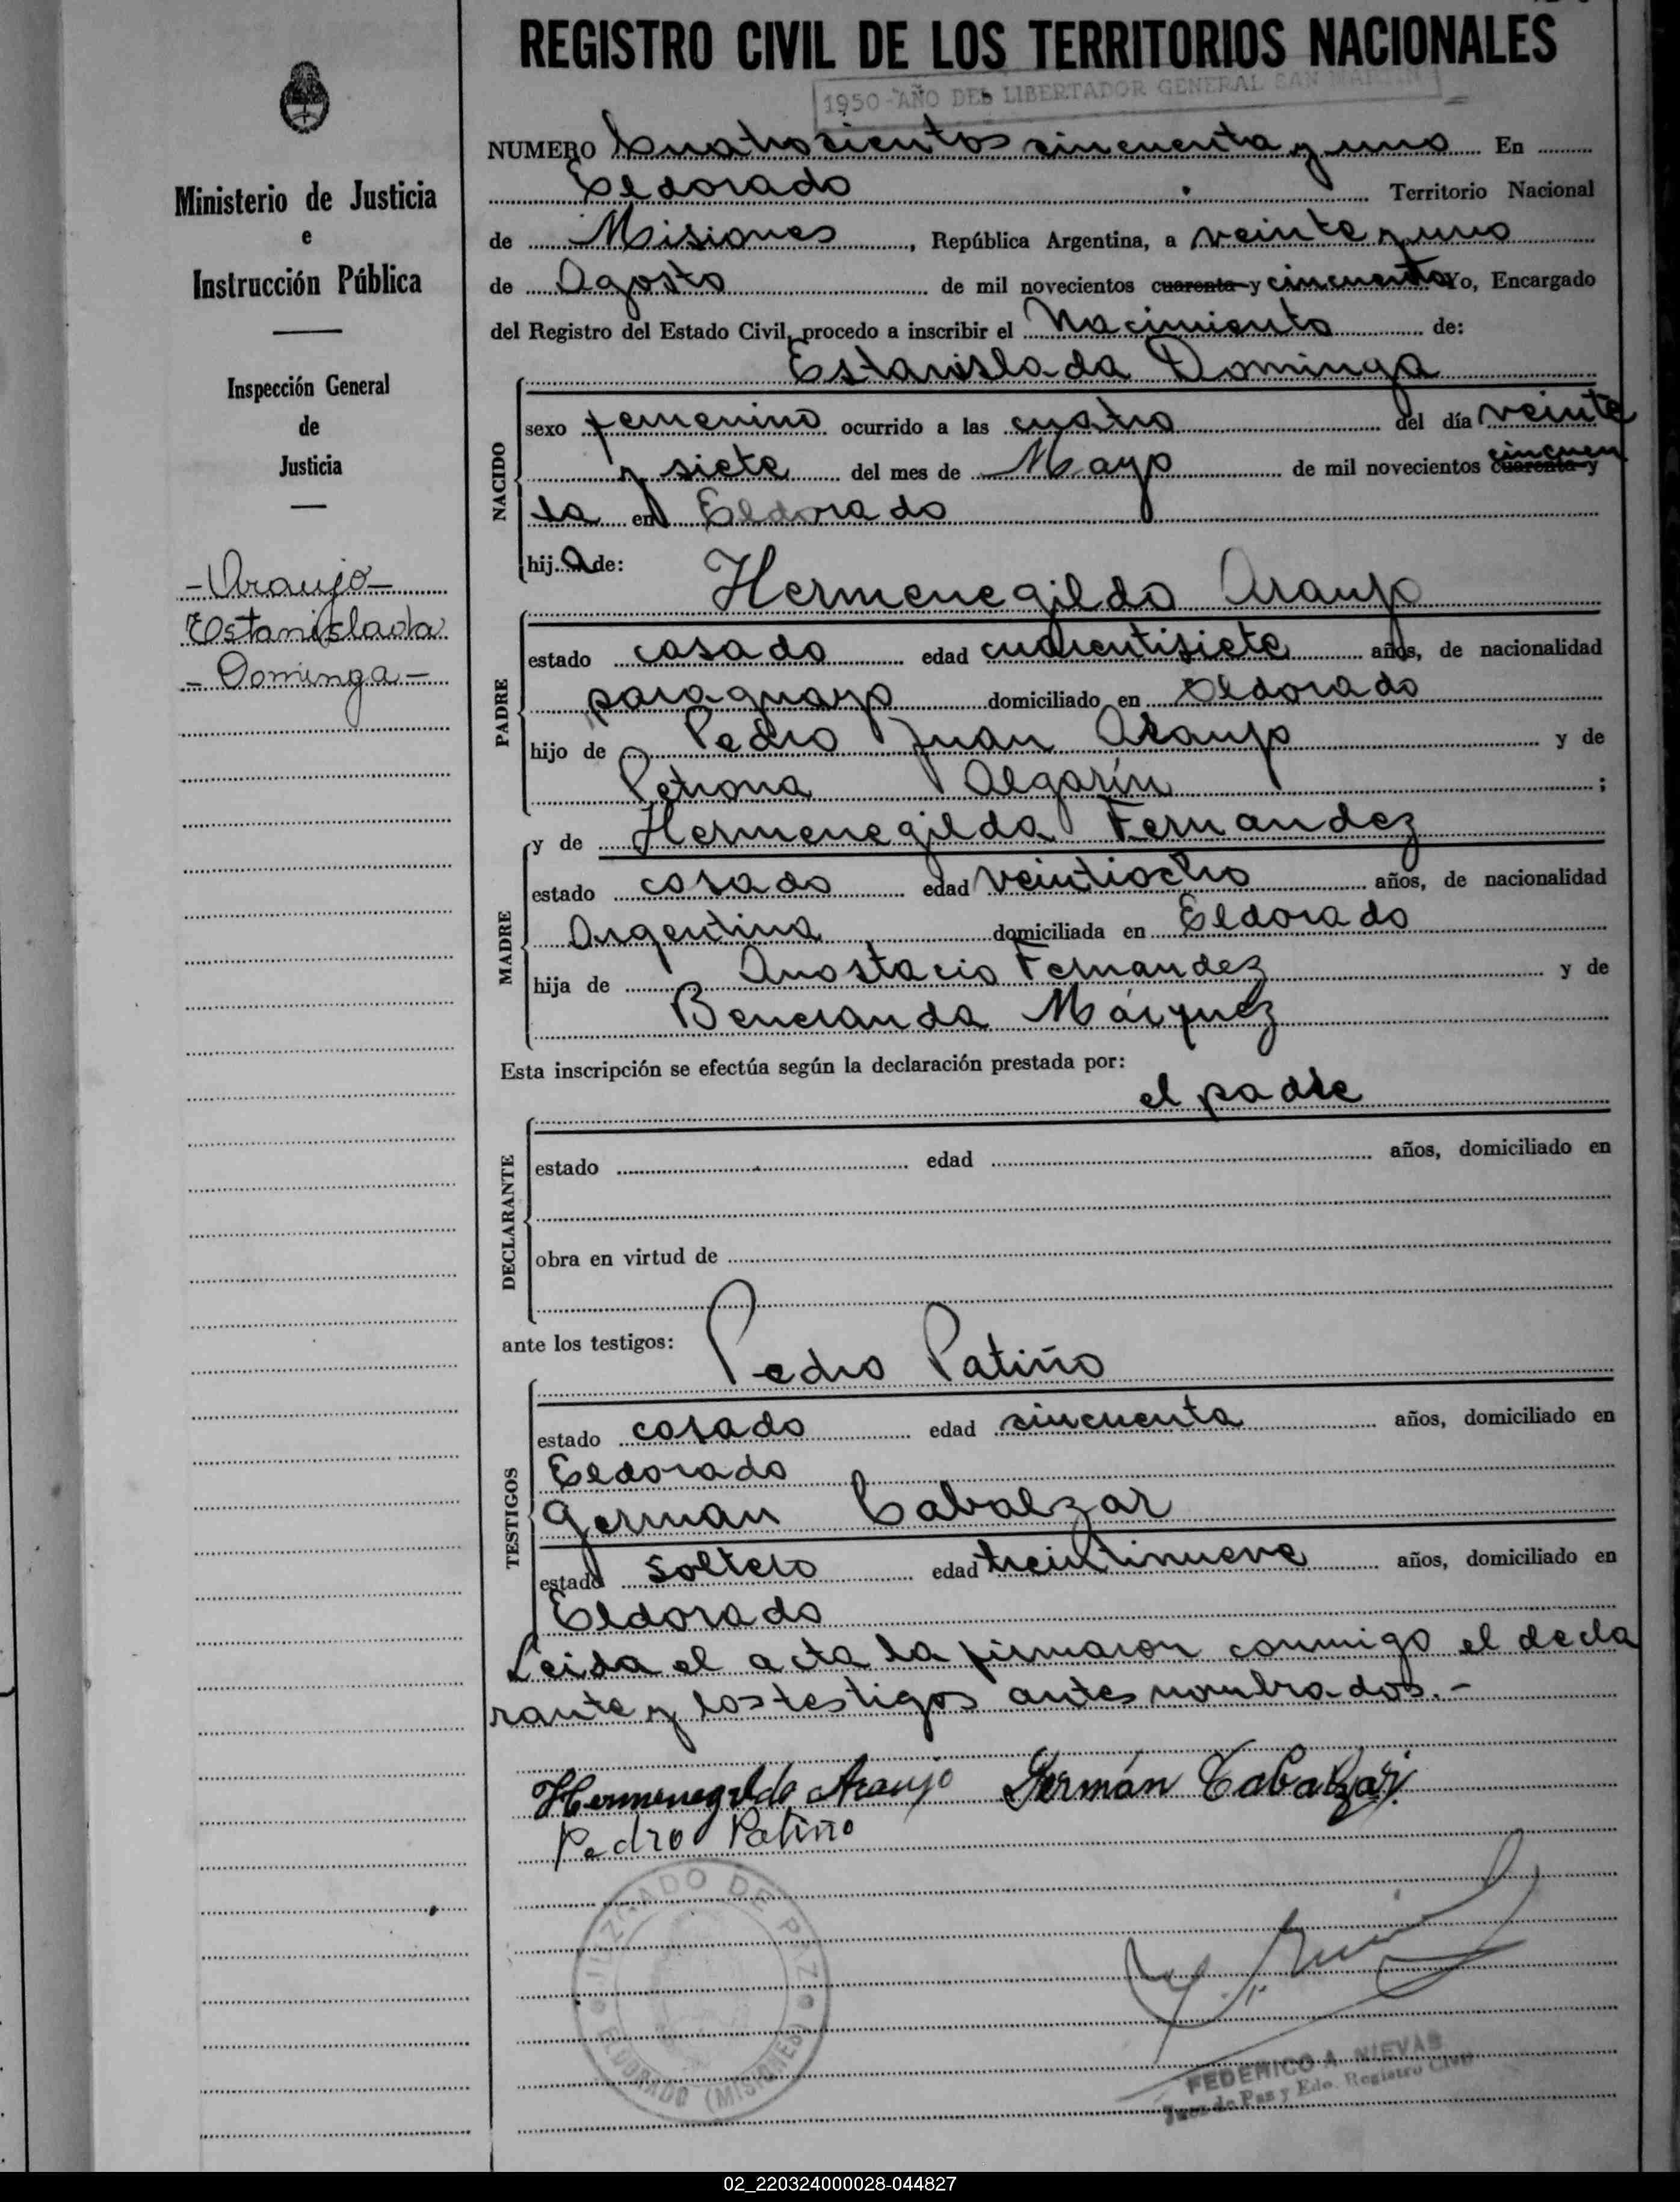 REGISTRO CIVIL DE LOS TERRITORIOS NACIONALES
1950-AÑO DEL LIBERTADOR GENERAL SAN MARTIN
Ministerio de Justicia
e
Instrucción Pública
Inspección General
de
Justicia
-Araujo-
Estanislada
-Dominga-
NUMERO Cuatrosientos sincuenta y uno En
Eldorado Territorio Nacional
de Misiones, República Argentina, a veinte y uno
de Agosto de mil novecientos cuarenta y cincuenta Yo, Encargado
del Registro del Estado Civil, procedo a inscribir el Nacimiento de:
Estanislada Dominga
NACIDO
sexo femenino ocurrido a las cuatro del día veinte
y siete del mes de Mayo de mil novecientos cuarenta y cincuen
ta en Eldorado
hija de:
Hermenegildo Araujo
PADRE
estado casado edad cuarentisiete años, de nacionalidad
paraguayo domiciliado en Eldorado
hijo de Pedro Juan Araujo y de
Petrona Algarín;
y de Hermenegilda Fernandez
MADRE
estado casado edad veintiocho años, de nacionalidad
Argentina domiciliada en Eldorado
hija de Anastacio Fernandez y de
Beneranda Márquez
Esta inscripción se efectúa según la declaración prestada por:
el padre
DECLARANTE
estado edad años, domiciliado en
obra en virtud de
ante los testigos:
Pedro Patiño
TESTIGOS
estado casado edad sincuenta años, domiciliado en
Eldorado
German Cabalzar
estado soltero edad treintinueve años, domiciliado en
Eldorado
Leida el acta la firmaron conmigo el decla
rante y los testigos antes nombrados.-
Hermenegildo Araujo Germán Cabalzar
Pedro Patiño
JUZGADO DE PAZ
ELDORADO (MISIONES)
FEDERICO A. NIEVAS
Juez de Paz y Edo. Registro Civil
02_220324000028-044827